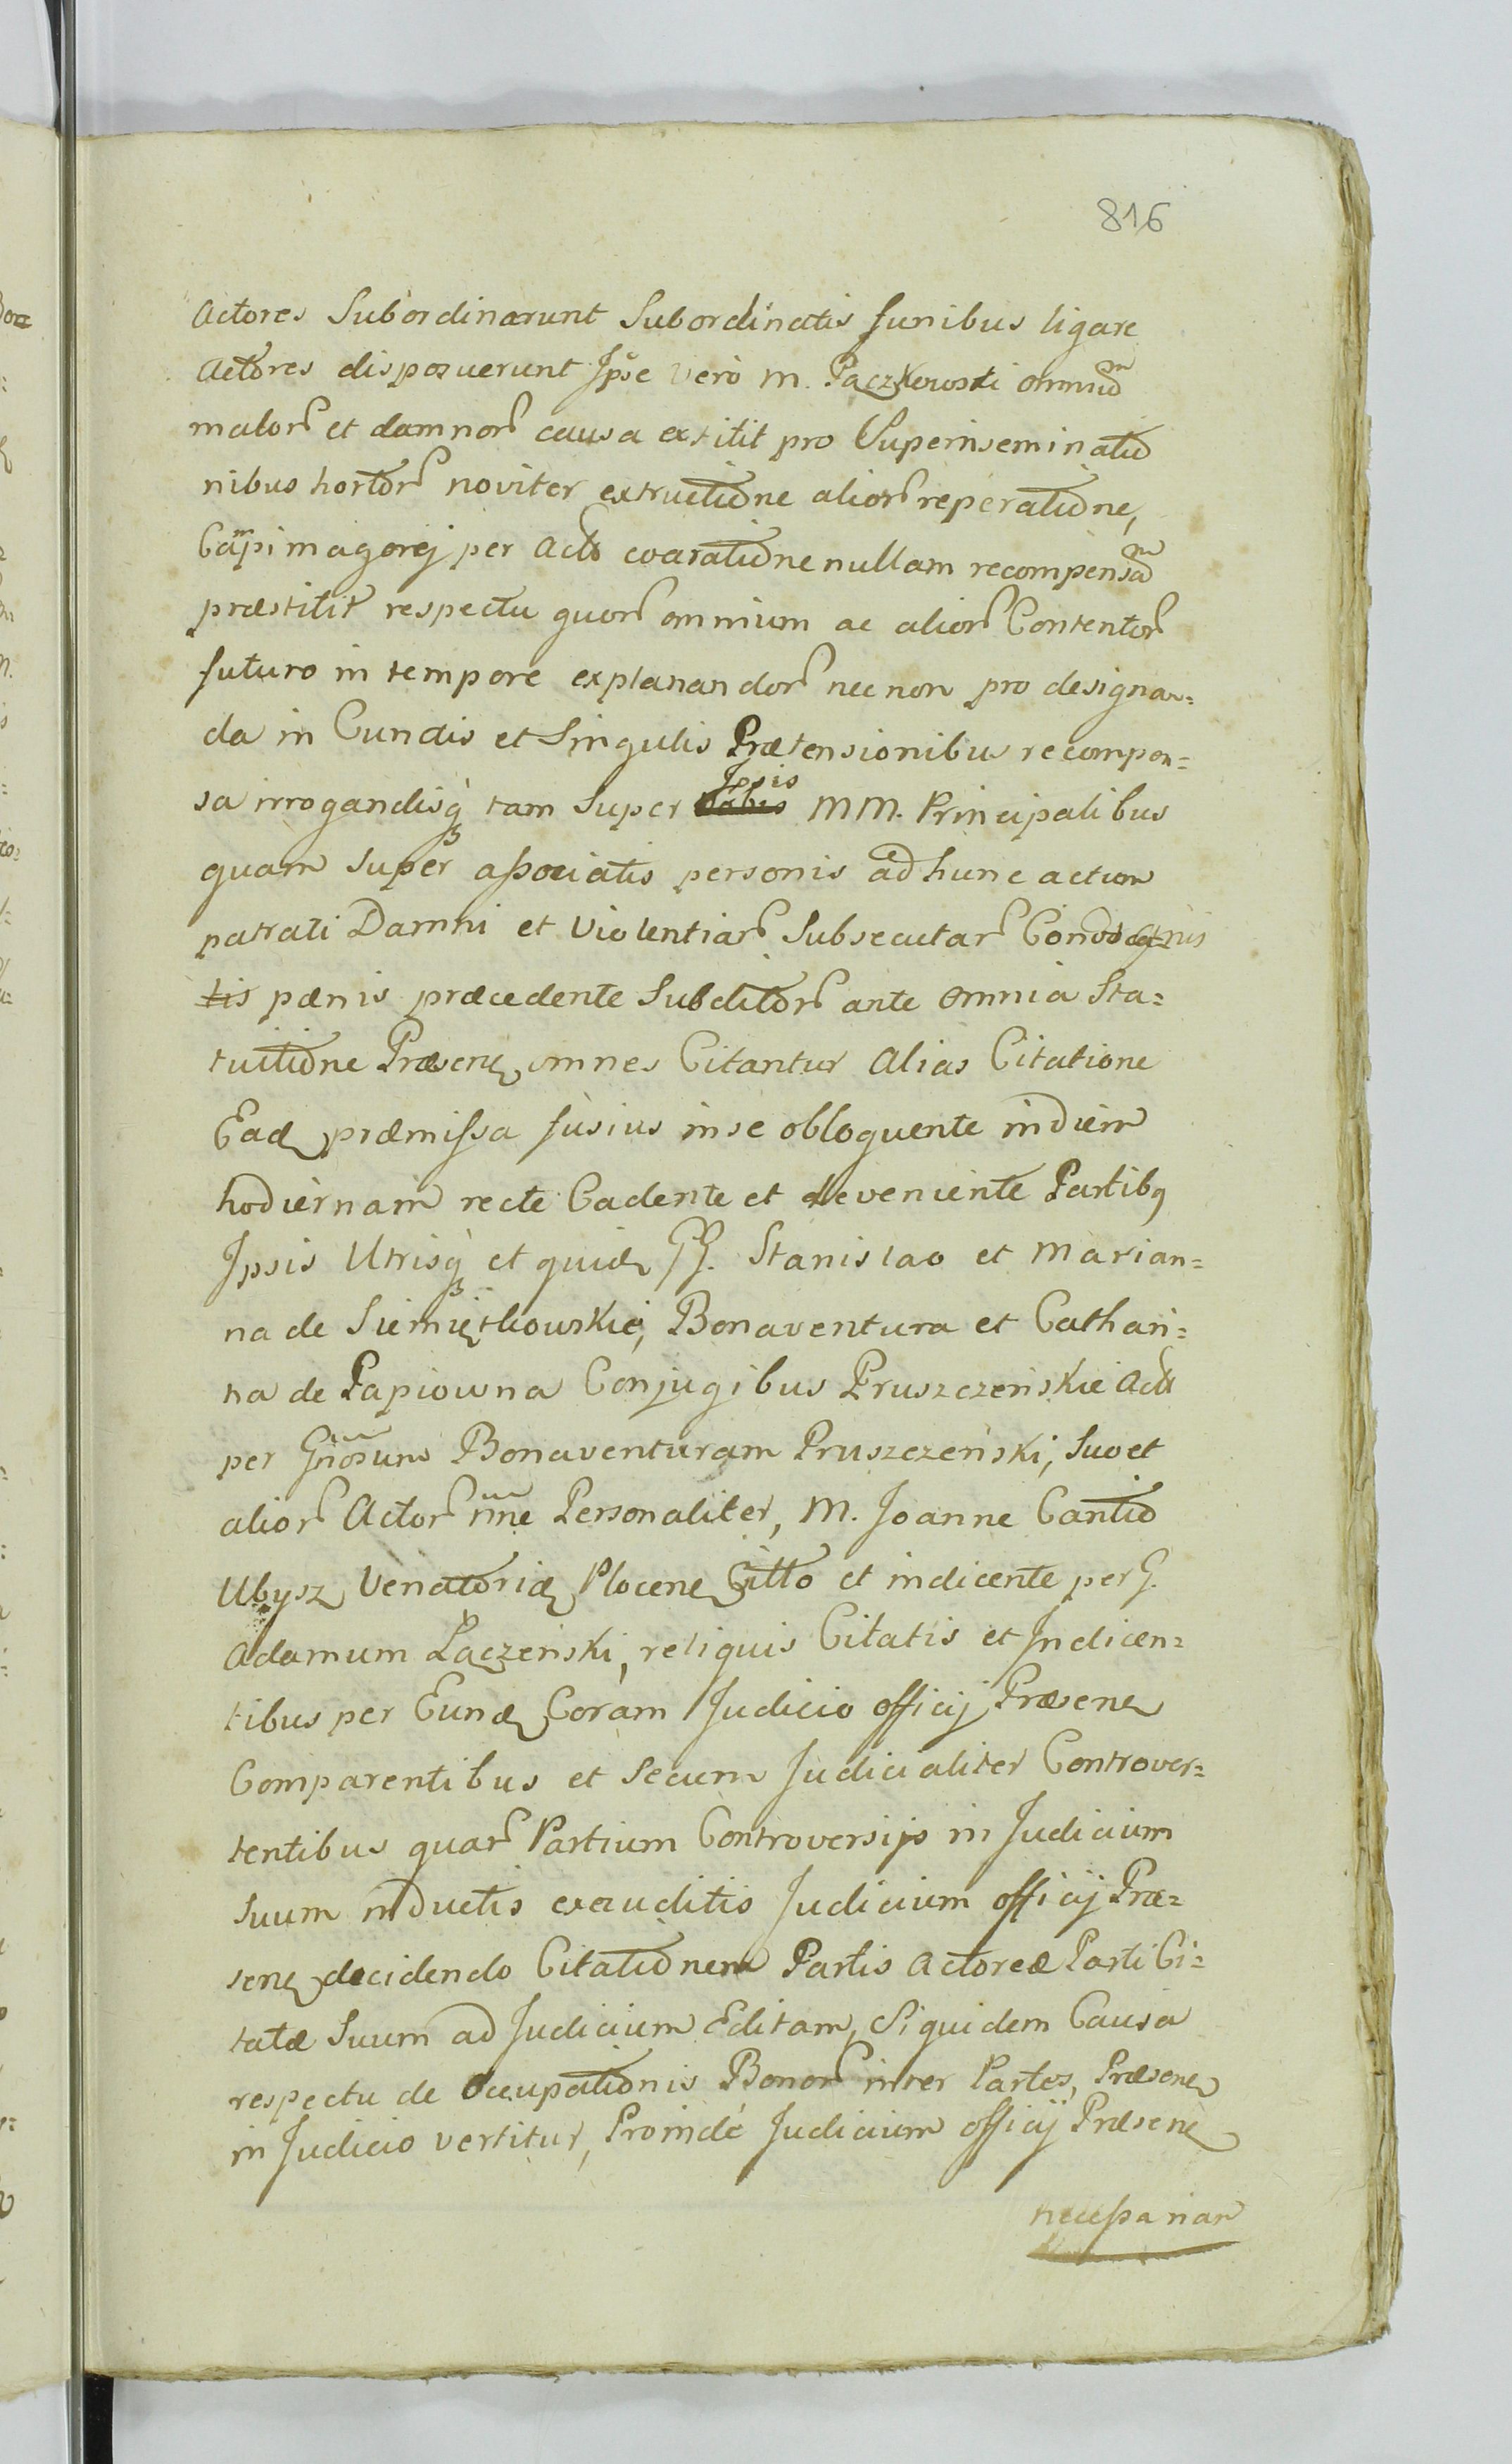 816
Actores Subordinarunt Subordinatis funibus ligare
Actores disposuerunt Ipse vero M. Pączkowski omniū
malor et damnor causa extitit pro Superinseminatio
nibus hortor noviter extructione alior reperatione,
Campi magorej per Acts coaratione nullam recompensam
præstitit respectu quor omnium ac alior Contentor
futuro in tempore explanandor nec non pro designan=
da in Cunctis et Singulis Prætensionibus recompen=
sa irrogandisq tam Super Ipsis MM. Principalibus
quam Super associatis personis ad hunc actum
patrati Damni et Violentiar Subsecutar Condignis
tis pænis præcedente Subditor ante omnia Sta=
tuitione Præsens omnes Citantur Alias Citatione
Ead præmissa fusius in se obloquente in diem
hodiernam recte Cadente et deveniente Partibq
Ipsis Utrisq et quid GG. Stanislao et Marian=
na de Siemiętkowskie, Bonaventura et Cathari=
na de Papiowna Conjugibus Pruszczeńskie Acts
per Gnosum Bonaventuram Pruszczeński, Suo et
alior Actor nne Personaliter, M. Joanne Cantio
Ubysz Venatorid Plocene Citto et indicente per G.
Adamum Łączeński, reliquis Citatis et Indicen=
tibus per Eund Coram Judicio officij Præsene
Comparentibus et Secum Judicialiter Controver=
tentibus quar Partium Controversijs in Judicium
Suum inductis exauditis Judicium officij Præ=
sens decidendo Citationem Partis Actoreæ Parti Ci=
tatæ Suum ad Judicium Editam, Siquidem Causa
respectu de Occupationis Bonor inter Partes, Præsene
in Judicio vertitur, Proinde Judicium officij Præsene
necessariam